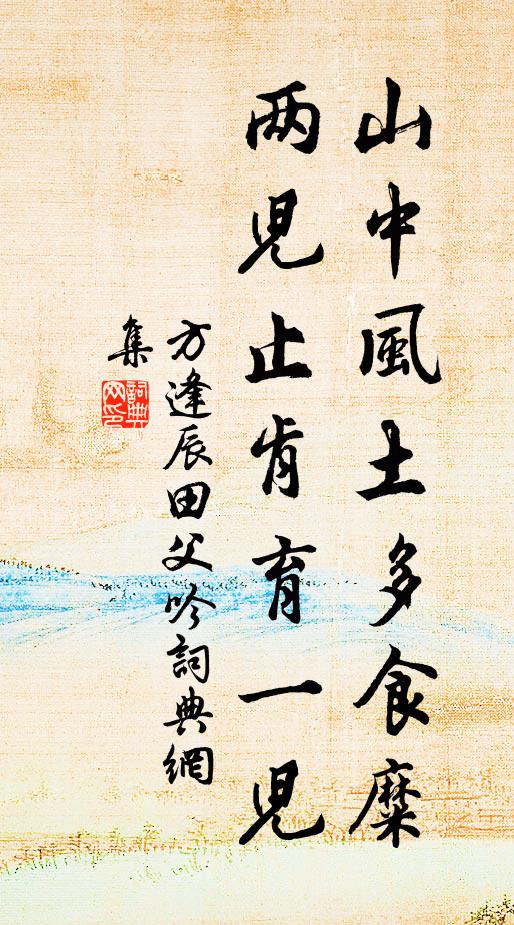 山中風土多食糜
两児止肯育一児
方逢辰田父吟詞典網
集
詞典
网印